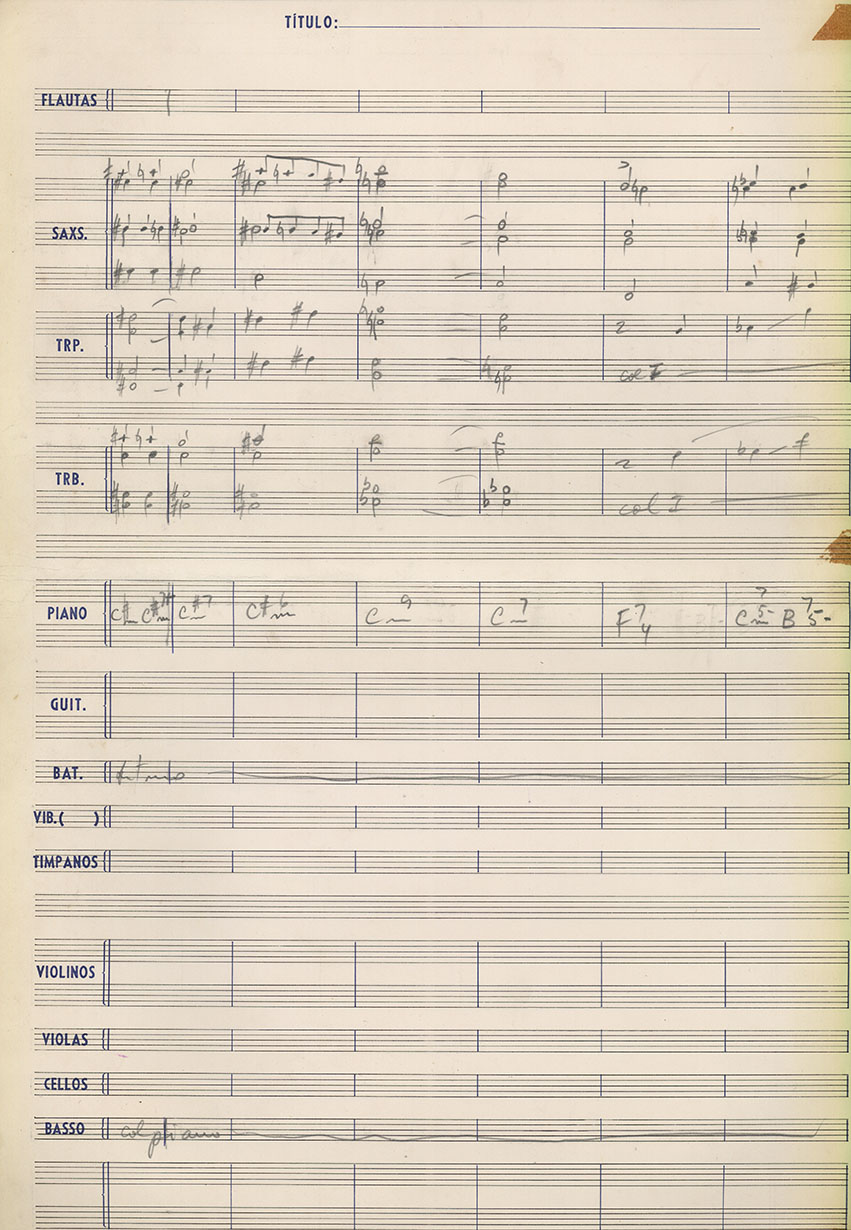 TÍTULO:
FLAUTAS
SAXS.
TRP.
col I
TRB.
col I
PIANO
C#m C#m7+ C#7 C#m6 Cm9 Cm7 F74 Cm75- B75-
GUIT.
BAT. ritmo
VIB.( )
TIMPANOS
VIOLINOS
VIOLAS
CELLOS
BASSO col piano